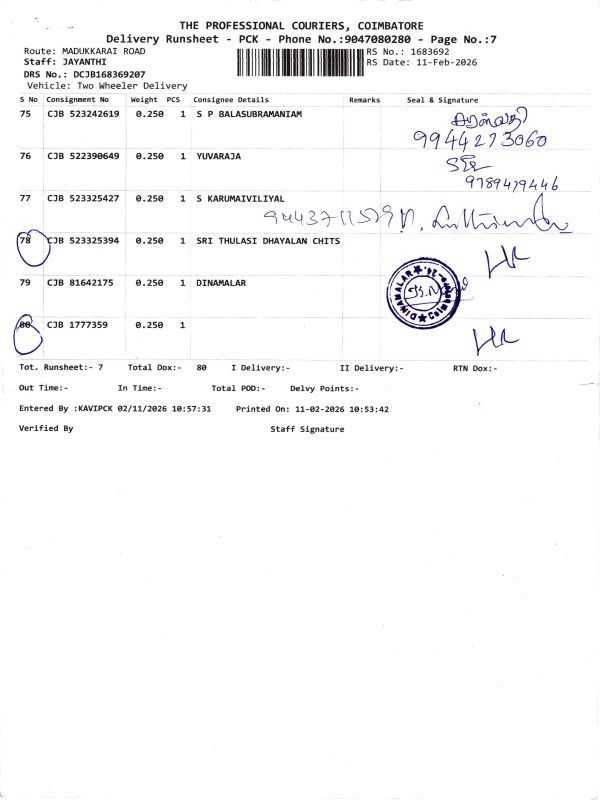 THE PROFESSIONAL COURIERS, COIMBATORE
Delivery Runsheet - PCK - Phone No.:9047080280 - Page No.:7
Route: MADUKKARAI ROAD RS No.: 1683692
Staff: JAYANTHI RS Date: 11-Feb-2026
DRS No.: DCJB168369207
Vehicle: Two Wheeler Delivery
S No Consignment No Weight PCS Consignee Details Remarks Seal & Signature
75 CJB 523242619 0.250 1 S P BALASUBRAMANIAM
9944273060
76 CJB 522390649 0.250 1 YUVARAJA
9789479446
77 CJB 523325427 0.250 1 S KARUMAIVILIYAL
78 CJB 523325394 0.250 1 SRI THULASI DHAYALAN CHITS
79 CJB 81642175 0.250 1 DINAMALAR
DINAMALAR
80 CJB 1777359 0.250 1
Tot. Runsheet:- 7 Total Dox:- 80 I Delivery:- II Delivery:- RTN Dox:-
Out Time:- In Time:- Total POD:- Delvy Points:-
Entered By :KAVIPCK 02/11/2026 10:57:31 Printed On: 11-02-2026 10:53:42
Verified By Staff Signature